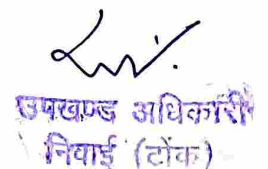 उपखण्ड अधिकारी
निवाई (टोंक)